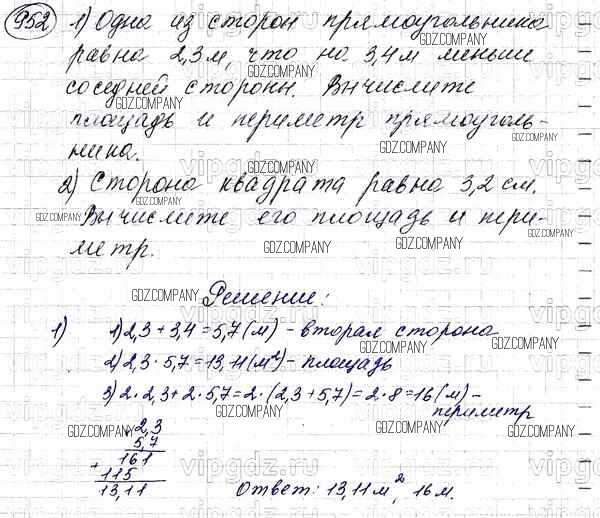 952 1) Одна из сторон прямоугольника
равна 2,3 м, что на 3,4 м меньше
соседней стороны. Вычислите
площадь и периметр прямоуголь-
ника.
2) Сторона квадрата равна 3,2 см.
Вычислите его площадь и пери-
метр.
Решение:
1) 1) 2,3 + 3,4 = 5,7 (м) - вторая сторона
2) 2,3 · 5,7 = 13,11 (м²) - площадь
3) 2 · 2,3 + 2 · 5,7 = 2 · (2,3 + 5,7) = 2 · 8 = 16 (м) -
периметр
× 2,3
5,7
161
+ 115
13,11
Ответ: 13,11 м², 16 м.
GDZ.COMPANY
vipgdz.ru